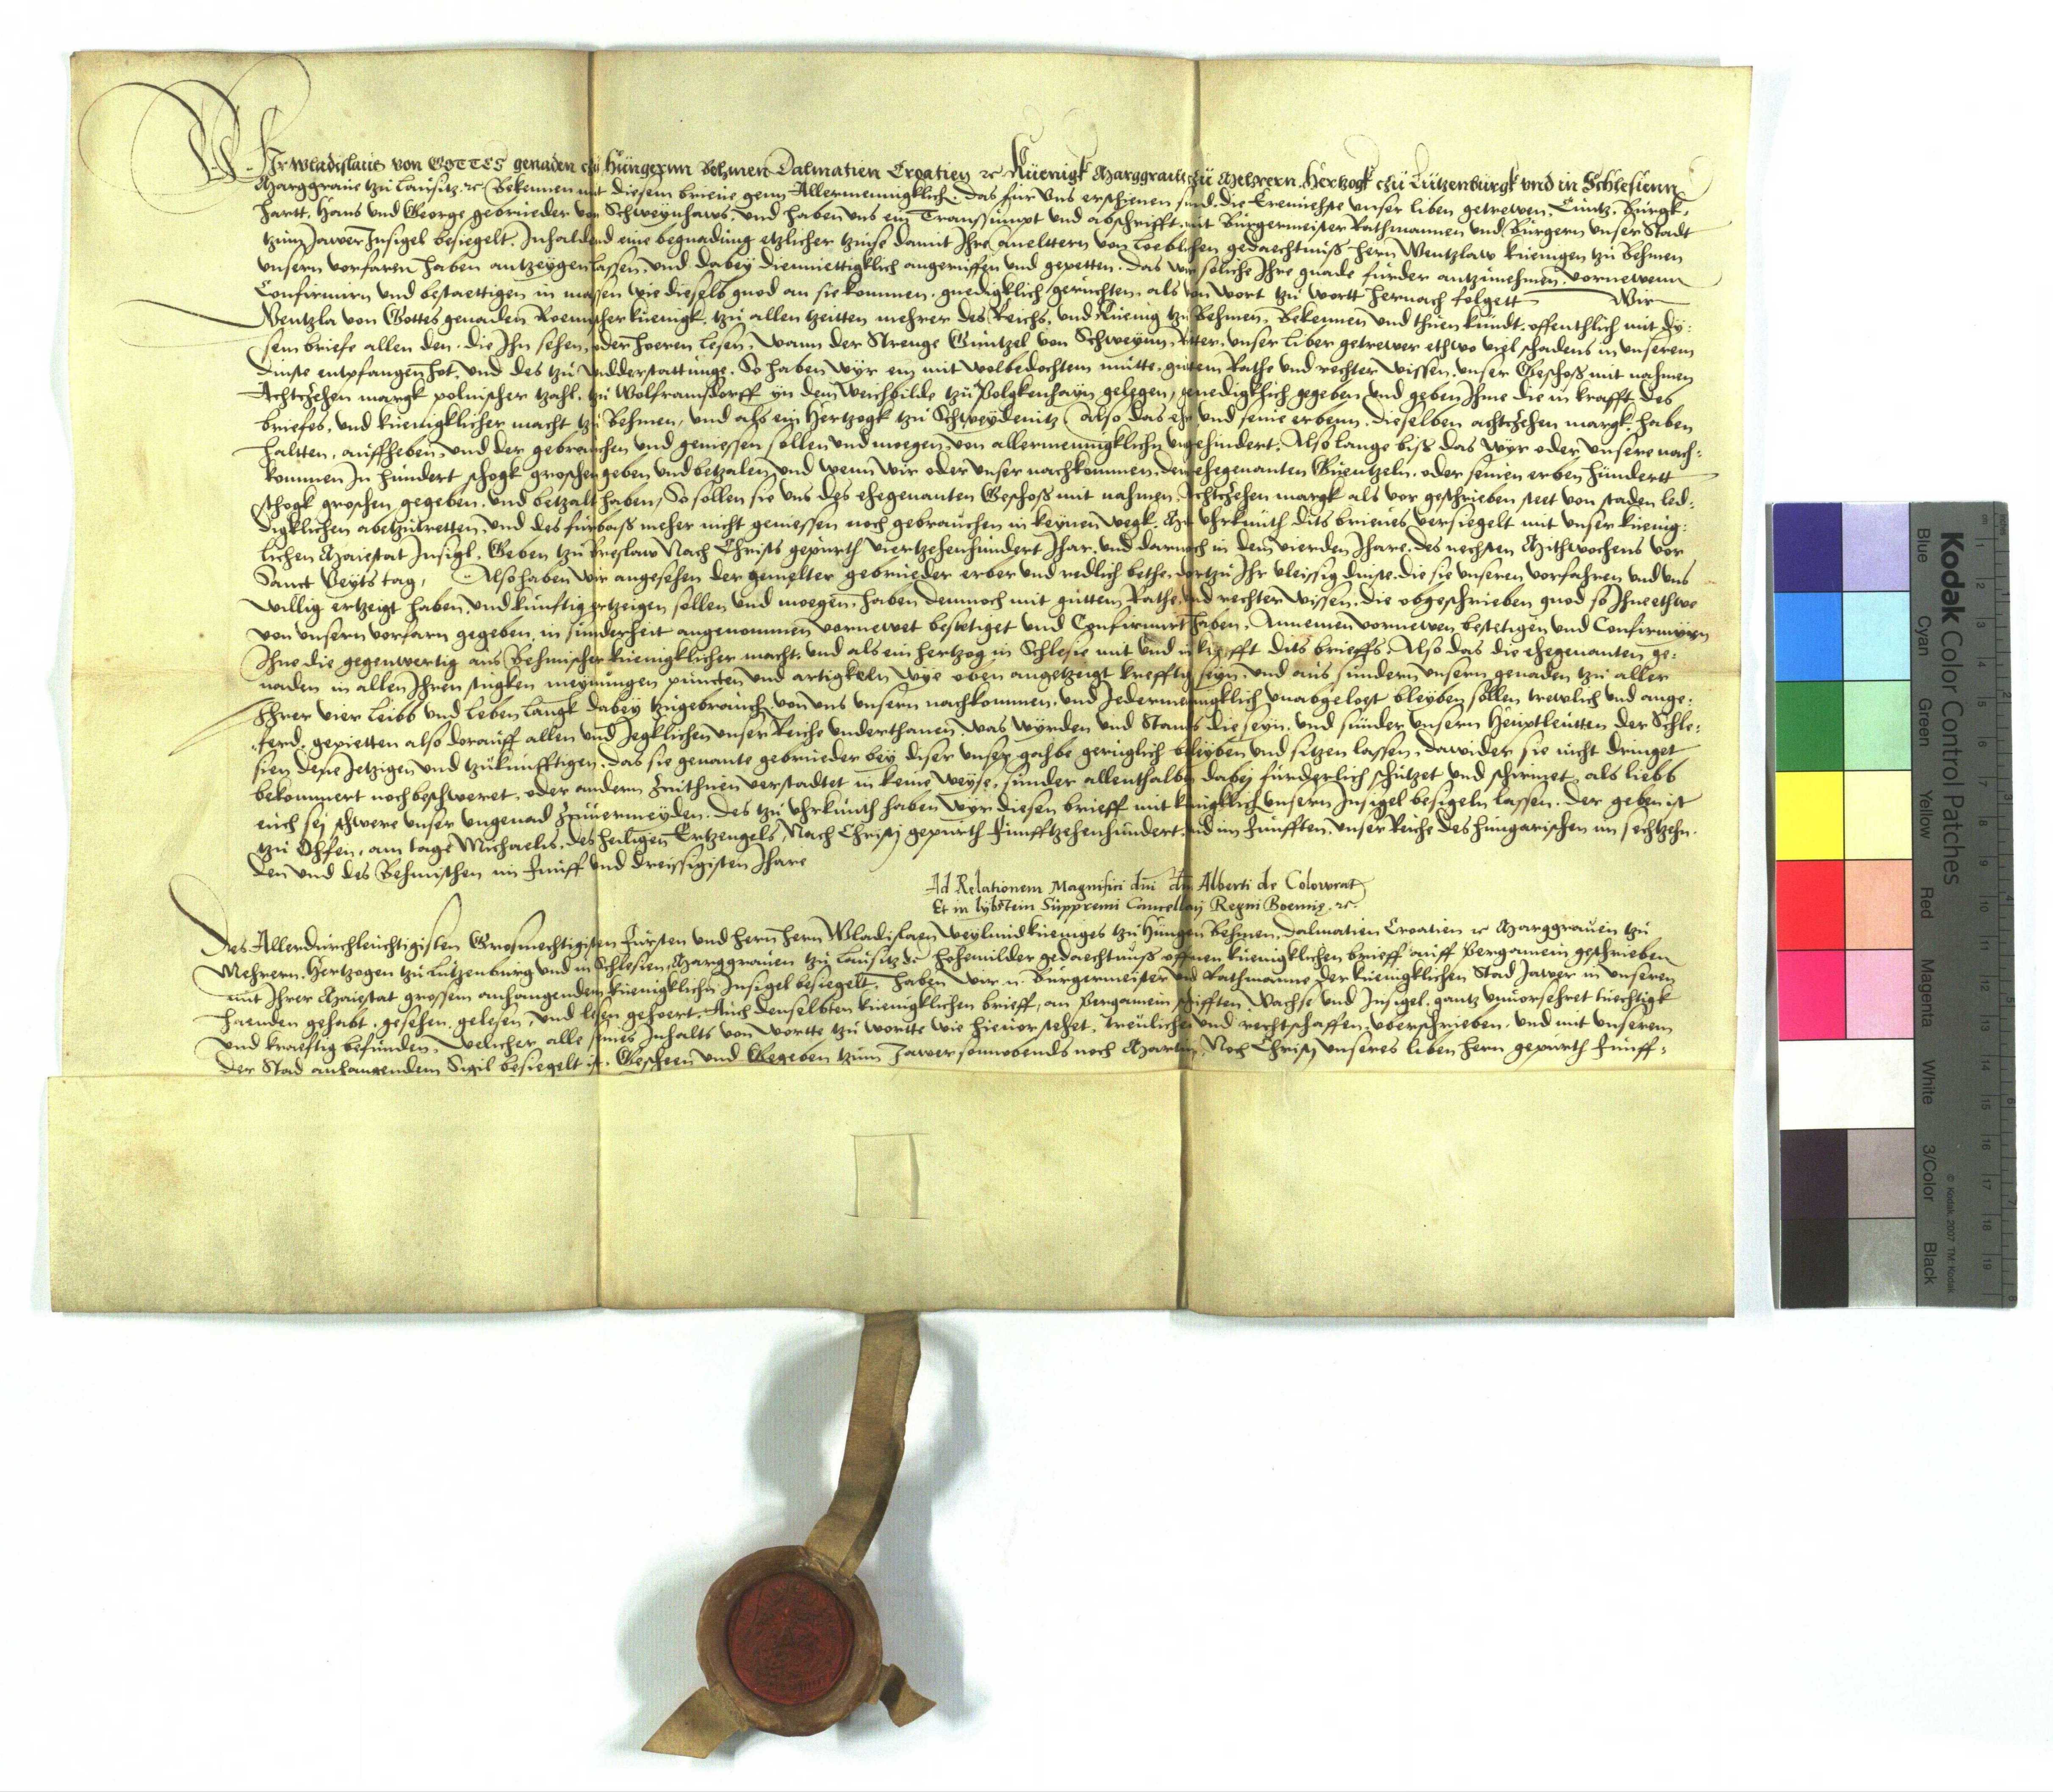 WIr Wladislaus von GOTTES genaden tzu Hungernn Behmen Dalmatien Croatien ꝛc Kuenigk Marggraue tzu Mehrern. Hertzogk tzu Lützenburgk vnd in Schlesienn
Marggraue tzu Lausitz ꝛc Bekennen mit diesem brieue genn Allermennigklich. Das fur vns erschienen sind. die Erenueste vnser liben getrewen, Cuntz, Burgk,
hartt, Hans vnd George gebrueder von Schweynhaws, vnd haben vns ein Transsumpt vnd abschrifft, mit Bürgermeister Rathmannen vnd Bürgern vnser Stadt
tzum Jawer Insigel besiegelt. Inhaldend eine begnadung etzlicher tzinse damit Ihre aneltern von loeblichen gedaechtnuß hern Wentzlaw kuenigen tzu Behmen
vnsern vorfaren haben antzeygen lassen, vnd dabey diemuettigklich angeruffen vnd gepetten. Das wir soliche Ihre gnade furder antzunehmen, vornewenn
Confirmirn vnd bestaettigen in massen wie dieselb gnod an sie kommen. gnedigklich geruchten, als von wort tzu wortt hernach folgett Wir
Wentzla von Gottes genaden Roemischer kuenigk, tzu allen tzeitten mehrer des Reichs, vnd Kuenig tzu Behmen, Bekennen vnd thuen kundt, offentlich mit dy:
sem briefe allen den, die Ihn sehen, oder hoeren lesen, wann der Strenge Guntzel von Schweyun, Ritter, vnser liber getrewer ethwo viel schadens in vnserem
dinste entpfangen hot, vnd des tzu widderstattunge, So haben wyr em mit wolbedochtem mutte, gutem Rathe vnd rechter wissen, vnser Geschoß mit nahmen
Achtzehen margk polnischer tzahl, tzu Wolframsdorff yn dem Weichbilde tzu Polgkenhayn gelegen, genedigklich gegeben vnd geben Ihme die in krafft des
briefes, vnd kuenigklicher macht tzu Behmen, vnd als ein Hertzogk tzu Schweydenitz Also das ehr vnd seine erbenn, dieselben achtzehen margk, haben
haltten, auffheben, vnd der gebrauchen vnd geniessen sollen vnd moegen, von allermennigklichn vngehindert, Also lange biß das wyr oder vnsere nach:
kommen In hundert schogk groschen geben, vnd betzalen, vnd wenn wir oder vnser nachkommen, den ehegenanten Guentzeln, oder seinen erben hundertt
schogk groschen, gegeben, vnd betzalt haben, So sollen sie vns des ehegenanten Geschoß mit nahmen, Achtzehen margk als vor geschrieben stet von staden led:
digklichen abetzutretten, vnd des furbaß meher nicht geniessen noch gebrauchen in keynen wegk. Mit vhrkunth dits brieues versiegelt mit vnser kuenig:
lichen Maiestat Insigl, Geben tzu Breßlaw Nach Christs gepurth viertzehenhundert Ihar, vnd darnach in dem vierden Ihare, des nechsten Mithwochens vor
Sanct Veyts tag, Also haben wir angesehen der gemelter gebrueder erber vnd redlich bethe, dortzu Ihr vleissig dinste, die sie vnseren vorfahren vnd vns
willig ertzeigt haben, vnd kunftig ertzeigen sollen vnd moegen, haben demnoch mit guttem Rathe, vnd rechter wissen, die obgeschrieben gnod so Ihne ethwo
von vnsern vorfarn gegeben, in sunderheit angenommen vornewet bestetiget vnd Confirmirt haben, Annemen vornewen bestetigen vnd Confirmyren
Ihne die gegenwertig aus Behmischer kuenigklicher macht, vnd als ein hertzog in Schlesie mit vnd in krafft dits brieffs, Also das die ehegenanten ge:
naden in allen Ihren stugken meynungen puncten vnd artigkeln wye oben angetzeigt krefftig seyn, vnd aus sundern vnsern genaden tzu aller
Ihrer vier leibb vnd leben langk dabey tzugebrauch, von vns vnsern nachkommen, vnd Jedermennigklich vnabgelost bleyben sollen, trewlich vnd ange:
ferd, gepietten also dorauff allen vnd Jegklichen vnser Reiche vnderthanen, was wyrden vnd Stands die seyn, vnd sunder vnsern Heuptleutten der Schle:
sien dene Jetzigen vnd tzukunfftigen, das sie genante gebrueder bey diser vnser gahbe geruglich bleyben vnd sitzen lassen, dawider sie nicht dringet
bekommert noch beschweret, oder andern Zuthuen verstadtet in keine weyse, sunder allenthalben dabej furderlich schutzet vnd schirmet, als liebb
euch sej schwere vnser vngenad Zuuermeyden. Des tzu vhrkunth haben wyr diesen brieff mit kunigklich vnsern Insigel besigeln lassen. Der geben ist
tzu Ofhen, am tage Michaelis, des heiligen Ertzengels, Nach Christj gepurth funfftzehenhundert vnd im funfften, vnser Reiche des hungarischen im sechtzehn,
den vnd des Behmischen im funff vnd dreissigisten Ihare
Ad Relationem Magnifici dni dni Alberti de Colowrat
Et in lybstein Suppremi Cancellarij Regni Boemie. ꝛc.
Des Allerdurchleuchtigisten Grosmechtigisten fursten vnd hern hern Wladislaen weylund kueniges tzu Hungern Behmen, Dalmatien Croatien ꝛc Marggrauen tzu
Mehrern, Hertzogen tzu Lutzenburg vnd in Schlesien, Marggrauen tzu Lausitz ꝛc hohemilder gedaechtnuß offnen kuenigklichen brieff auff Pergamein geschrieben
mit Ihrer Maiestat grossem anhangenden kuenigklichn Insigel besiegelt, haben wir n. Burgermeister vnd Rathmanne der kuenigklichen Stad Jawer in vnseren
haenden gehabt, gesehen, gelesen, vnd lesen gehoert, Auch denselbten kuenigklichen brieff, an Pergamein schrifften, Wachse vnd Insigel, gantz vnuorsehret tuechtigk
vnd kraeftig befunden, welicher, alle seines Inhalts von wortte tzu wortte wie hieuor stehet, treulichen vnd rechtschaffen, vberschrieben, vnd mit vnserem
der Stad anhangendem Sigil besiegelt ist. Gescheen vnd Gegeben tzum Jawer sonnobends noch Martini, Noch Christj vnseres liben hern gepurth funff:
Kodak Color Control Patches
Blue Cyan Green Yellow Red Magenta White 3/Color Black
© Kodak, 2007 TM: Kodak
cm 1 2 3 4 5 6 7 8 9 10 11 12 13 14 15 16 17 18 19
inches 1 2 3 4 5 6 7 8